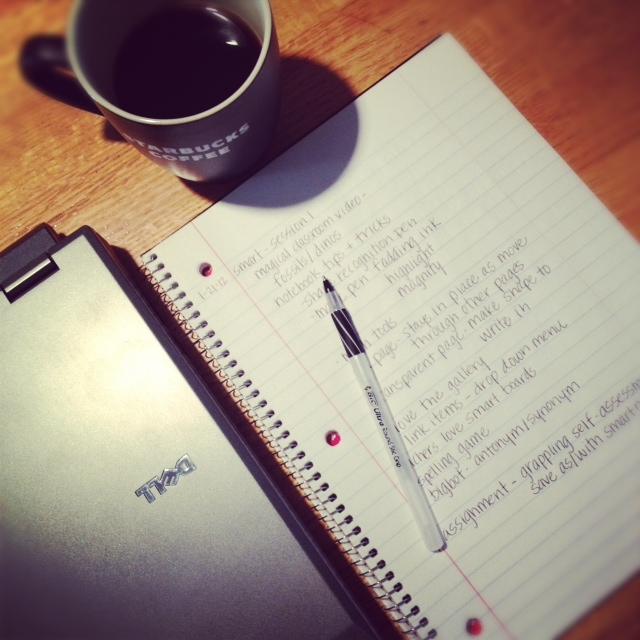 STARBUCKS
COFFEE
1-21-12
smart - session 1
magical classroom video -
fossils / dinos
notebook tips + tricks
recognition pen
pen fadding ink
highlight
magnify
tools
page - stays in place as move
through other pages
transparent page - make shape to
write in
love the gallery
link items - drop down menu
love smart boards
spelling game
bigbot - antonym/synonym
assignment - grappling self-assessm
save as/with smart
DELL
BIC